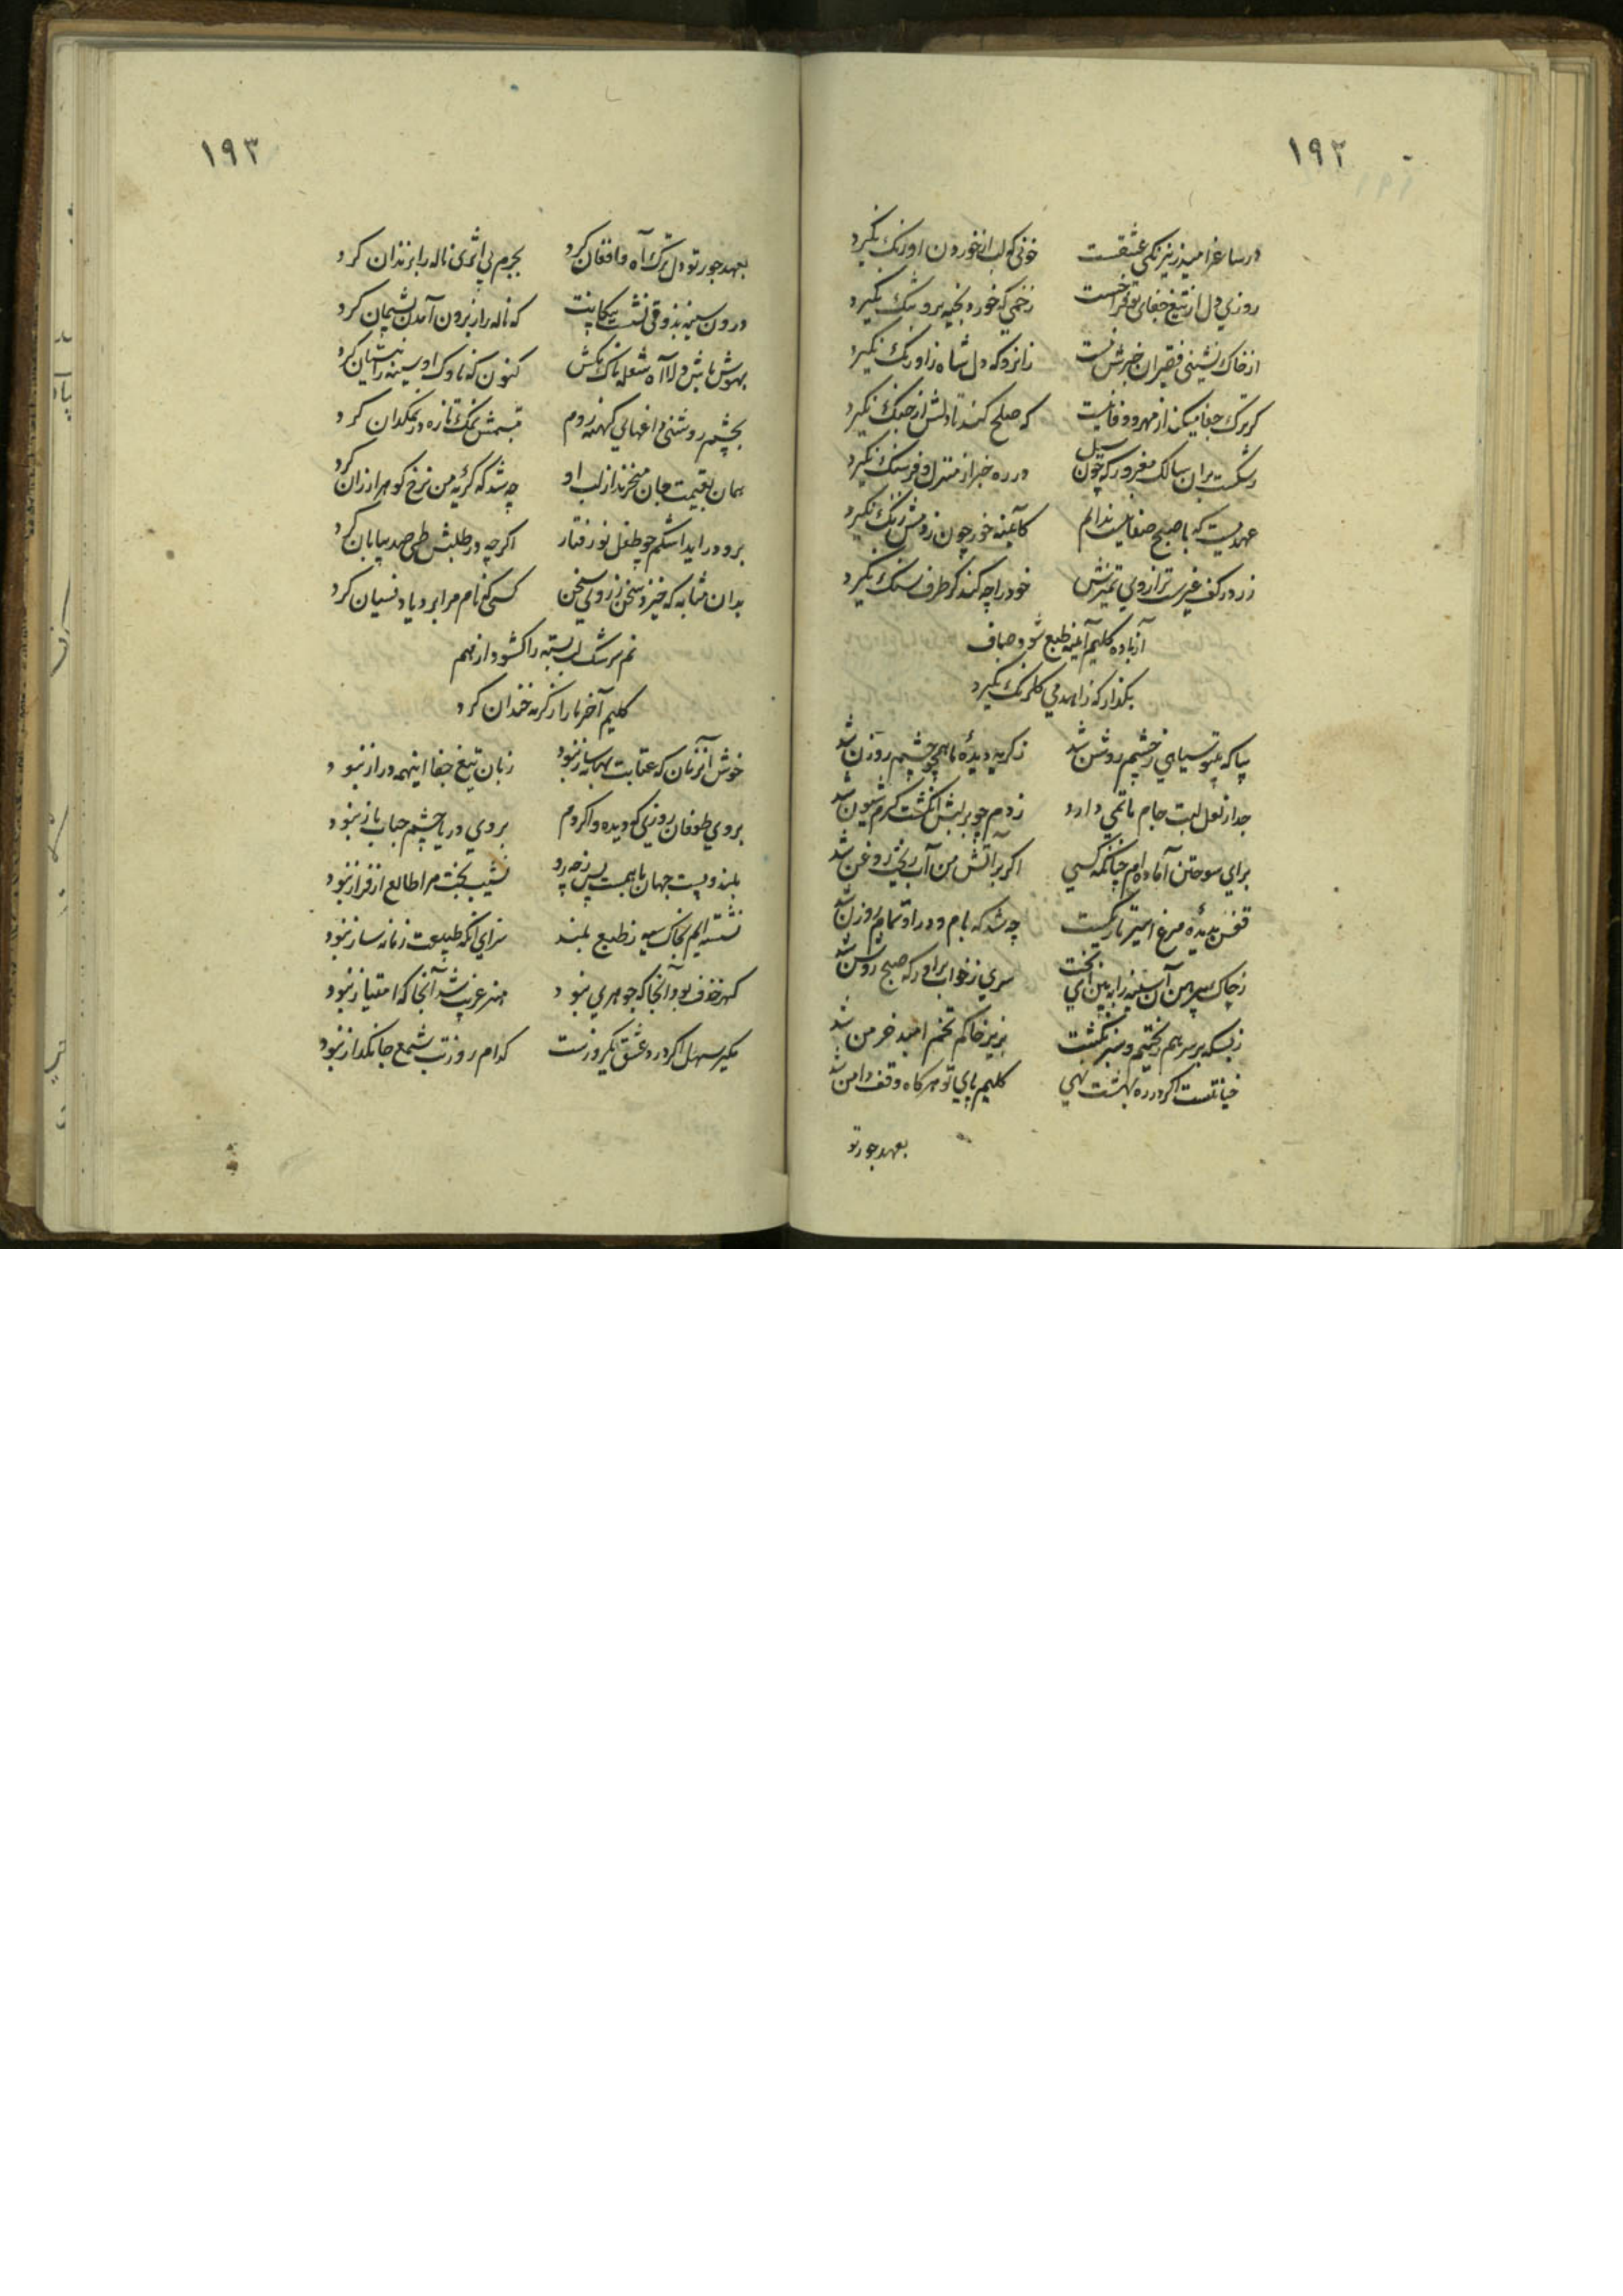 ۱۹۲
در ساغر امید ز نیرنگی عشقست خونی که لب از خوردن او رنگ نگیرد
روزی دل از تیغ جفای تو نخواست زخمی که خورد بخیه برو تنگ نگیرد
از خاک نشینی فقیران خبرش نیست زانرو که دل شاه ز اورنگ نگیرد
گر ترک جفا میکند از مهر و وفا نیست که صلح کند تا دلش از جنگ نگیرد
رشکست بران سالک مغرور که چون سیل در ره خبر از منزل و فرسنگ نگیرد
عهدیست که با صبح صفا نیست ندانم کآئینه خور چون ز دمش زنگ نگیرد
زر در کف غیرست ترازوی تمیزش خود را چه کند گر طرف سنگ نگیرد
از باده کلیم آینه طبع شود صاف
بگذار که زاهد می گلرنگ نگیرد
بیا که بیتو سیاهی ز چشم روشن شد ز گریه دیدهٔ ما همچو چشم روزن شد
جدا ز لعل لبت جام ماتمی دارد زدم چو بر لبش انگشت گرم شیون شد
برای سوختن آماده ام چنانکه کسی اگر بر آتش من آب ریخت روغن شد
قفس بدیدهٔ مرغ اسیر تاریکست چه شد که بام و در او تمام روزن شد
ز چاک پیرهن آن سینه را ببین ای بخت سری ز خواب برآور که صبح روشن شد
ز بسکه بر سر هم ریختیم و سبز نگشت بزیر خاکم تخم امید خرمن شد
خیانتست اگر در ره بهشت نهی کلیم پای تو هرگاه وقف دامن شد
بعهد جور تو
۱۹۳
بعهد جور تو دل ترک آه و افغان کرد بجرم بی اثری ناله را بزندان کرد
درون سینه بذوقی نشست پیکانت که ناله را ز برون آمدن پشیمان کرد
بهوش باش دلا آه شعله ناک مکش کنون که ناوک او سینه را نیستان کرد
بچشم روشنی داغهای کهنه روم تبسمش نمک تازه در نمکدان کرد
همان بقیمت جان میخرند از لب او چه شد که گریه من نرخ گوهر ارزان کرد
برو در اید اشکم چو طفل نو رفتار اگر چه در طلبش طی صد بیابان کرد
بدان مثابه که خیزد سخن ز روی سخن کسی که نام مرا برد یاد نسیان کرد
نم سرشک لب بسته را گشود از هم
کلیم آخر ما را ز گریه خندان کرد
خوش آنزمان که عتابت بهانه ساز نبود زبان تیغ جفا اینهمه دراز نبود
بروی طوفان روزی که دیده وا کردم بروی دریا چشم حباب باز نبود
بلند و پست جهان با همست پس ز چه رو نشیب بخت مرا طالع از فراز نبود
نشسته ایم بخاک سیه ز طبع بلند سزای آنکه طبیعت زمانه ساز نبود
گهر خزف بود آنجا که جوهری نبود هنر غریب شد آنجا که امتیاز نبود
مگیر سهل اگر درد عشق یکروزست کدام روز تب شمع جانگداز نبود